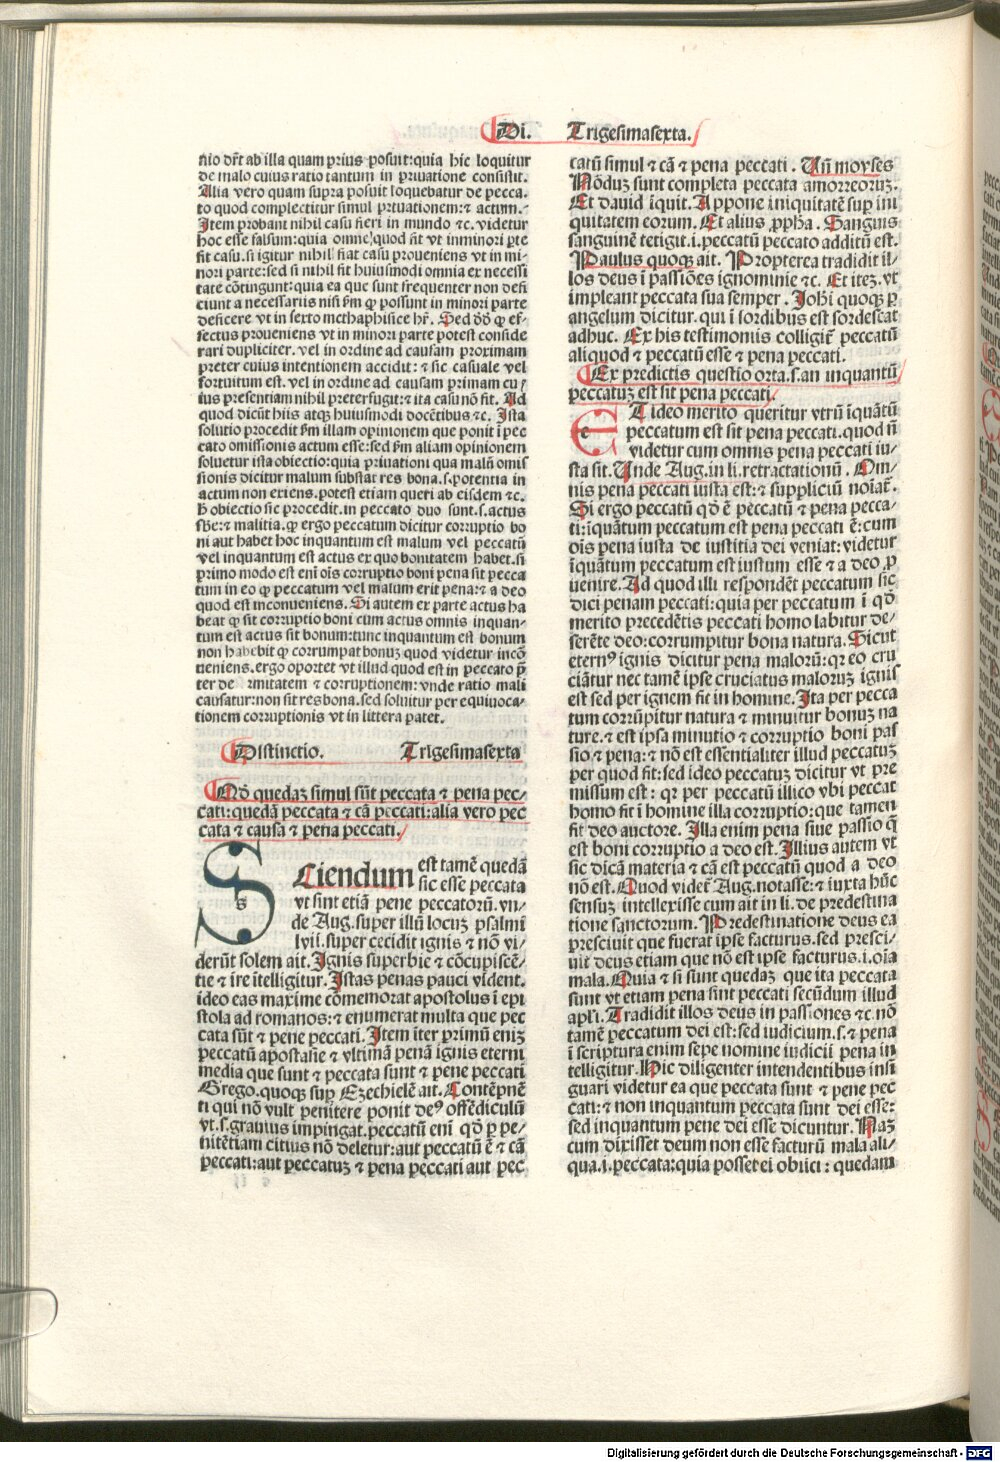 Di. Trigesimasexta.
nio dr̄t ab illa quam prius posuit:quia hic loquitur
de malo cuius ratio tantum in priuatione consistit.
Alia vero quam supra posuit loquebatur de pecca-
to quod complectitur simul priuationem:⁊ actum.
Item probant nihil casu fieri in mundo ⁊c. videtur
hoc esse falsum:quia omne quod fit vt inminori pte
fit casu.si igitur nihil fiat casu proueniens vt in mi-
nori parte:sed si nihil fit huiusmodi omnia ex necessi
tate cōtingunt:quia ea que sunt frequenter non defi
ciunt a necessariis nisi ẜm ꝙ possunt in minori parte
deficere vt in sexto methaphisice hr̄. Sed dōō ꝙ ef-
fectus proueniens vt in minori parte potest conside
rari dupliciter. vel in ordine ad causam proximam
preter cuius intentionem accidit: ⁊ sic casuale vel
fortuitum est. vel in ordine ad causam primam cu/
ius presentiam nihil preterfugit:⁊ ita casu nō fit. Ad
quod dicūt hiis atqꝫ huiusmodi docētibus ⁊c. Ista
solutio procedit ẜm illam opinionem que ponit ī pec
cato omissionis actum esse:sed ẜm aliam opinionem
soluetur ista obiectio:quia priuationi qua malū omis
sionis dicitur malum substat res bona.s.potentia in
actum non exiens.potest etiam queri ab eisdem ⁊c.
h̄ obiectio sic procedit.in peccato duo sunt.s.actus
sb̄e:⁊ malitia. ꝙ ergo peccatum dicitur corruptio bo
ni aut habet hoc inquantum est malum vel peccatū
vel inquantum est actus ex quo bonitatem habet.si
primo modo est eni oīs corruptio boni pena sit pecca
tum in eo ꝙ peccatum vel malum erit pena:⁊ a deo
quod est inconueniens. Si autem ex parte actus ha
beat ꝙ sit corruptio boni cum actus omnis inquan-
tum est actus sit bonum:tunc inquantum est bonum
non habebit ꝙ corrumpat bonuꝫ quod videtur incō
ueniens.ergo oportet vt illud quod est in peccato p̄
ter deformitatem ⁊ corruptionem: vnde ratio mali
causatur:non sit res bona.sed soluitur per equiuoca-
tionem corruptionis vt in littera patet.
Distinctio. Trigesimasexta
Nō quedaꝫ simul sūt peccata ⁊ pena pec-
cati:quedā peccata ⁊ cā peccati:alia vero pec
cata ⁊ causa ⁊ pena peccati.
s Ciendum est tamē quedā
sic esse peccata
vt sint etiā pene peccatorū.vn/
de Aug.super illū locuꝫ psalmi
lvii.super cecidit ignis ⁊ nō vi/
derūt solem ait. Ignis superbie ⁊ cōcupiscē-
tie ⁊ ire ītelligitur. Istas penas pauci vident.
ideo eas maxime cōmemorat apostolus ī epi
stola ad romanos:⁊ enumerat multa que pec
cata sūt ⁊ pene peccati. Item īter primū eniꝫ
peccatū apostasie ⁊ vltimā penā ignis eterni
media que sunt ⁊ peccata sunt ⁊ pene peccati
Grego.quoqꝫ sup Ezechielē ait. Contēpnē
ti qui nō vult penitere ponit deꝰ offēdiculū
vt.s.grauius impingat.peccatū enī qd̄ p pe/
nitētiam citius nō deletur:aut peccatū ē ⁊ cā
peccati:aut peccatuꝫ ⁊ pena peccati aut pec
catū simul ⁊ cā ⁊ pena peccati . Vn̄ moyses
Nōduꝫ sunt completa peccata amorreoruꝫ.
Et dauid īquit. Appone iniquitatē sup ini
quitatem eorum. Et alius ꝓph̄a. Sanguis
sanguinē tetigit.i.peccatū peccato additū est.
Paulus quoqꝫ ait. Propterea tradidit il/
los deus ī passiōes ignominie ⁊c. Et iteꝫ.vt
impleant peccata sua semper . Joh̄i quoqꝫ p
angelum dicitur.qui ī sordibus est sordescat
adhuc. Ex his testimoniis colligit̄ peccatū
aliquod ⁊ peccatū esse ⁊ pena peccati.
Ex predictis questio orta.s.an inquantū
peccatuꝫ est sit pena peccati.
e T ideo merito queritur vtrū īquātū
peccatum est sit pena peccati.quod n̄
videtur cum omnis pena peccati iu/
sta sit. Unde Aug.in li.retractationū . Om-
nis pena peccati iusta est:⁊ suppliciū noīat̄.
Si ergo peccatū qd̄ ē peccatū ⁊ pena pecca-
ti:īquātum peccatum est pena peccati ē:cum
oīs pena iusta de iustitia dei veniat:videtur
īquātum peccatum est iustum esse ⁊ a deo ꝓ
uenire. Ad quod illi respondēt peccatum sic
dici penam peccati:quia per peccatum ī qd̄
merito precedētis peccati homo labitur de/
serēte deo:corrumpitur bona natura. Sicut
eternꝰ ignis dicitur pena malorū:qꝛ eo cru
ciātur nec tamē ipse cruciatus maloruꝫ ignis
est sed per ignem fit in homine. Ita per pecca
tum corrūpitur natura ⁊ minuitur bonuꝫ na
ture.⁊ est ipsa minutio ⁊ corruptio boni pas
sio ⁊ pena:⁊ nō est essentialiter illud peccatuꝫ
per quod fit:sed ideo peccatuꝫ dicitur vt pre
missum est: qꝛ per peccatū illico vbi peccat
homo fit ī homine illa corruptio:que tamen
fit deo auctore. Illa enim pena siue passio q̄
est boni corruptio a deo est. Illius autem vt
sic dicā materia ⁊ cā est peccatū quod a deo
nō est. Quod videt̄ Aug.notasse:⁊ iuxta hūc
sensuꝫ intellexisse cum ait in li.de predestina
tione sanctorum. Predestinatione deus ea
presciuit que fuerat ipse facturus.sed presci/
uit deus etiam que nō est ipse facturus.i.oīa
mala. Quia ⁊ si sunt quedaꝫ que ita peccata
sunt vt etiam pena sint peccati secūdum illud
apl̄i. Tradidit illos deus in passiones ⁊c nō
tamē peccatum dei est:sed iudicium.s.⁊ pena
ī scriptura enim sepe nomine iudicii pena in
telligitur. Hic diligenter intendentibus insi
guari videtur ea que peccata sunt ⁊ pene pec
cati:⁊ non inquantum peccata sunt dei esse:
sed inquantum pene dei esse dicuntur. Naꝫ
cum dixisset deum non esse facturū mala ali-
qua.i.peccata:quia posset ei obiici: quedam
Digitalisierung gefördert durch die Deutsche Forschungsgemeinschaft - DFG